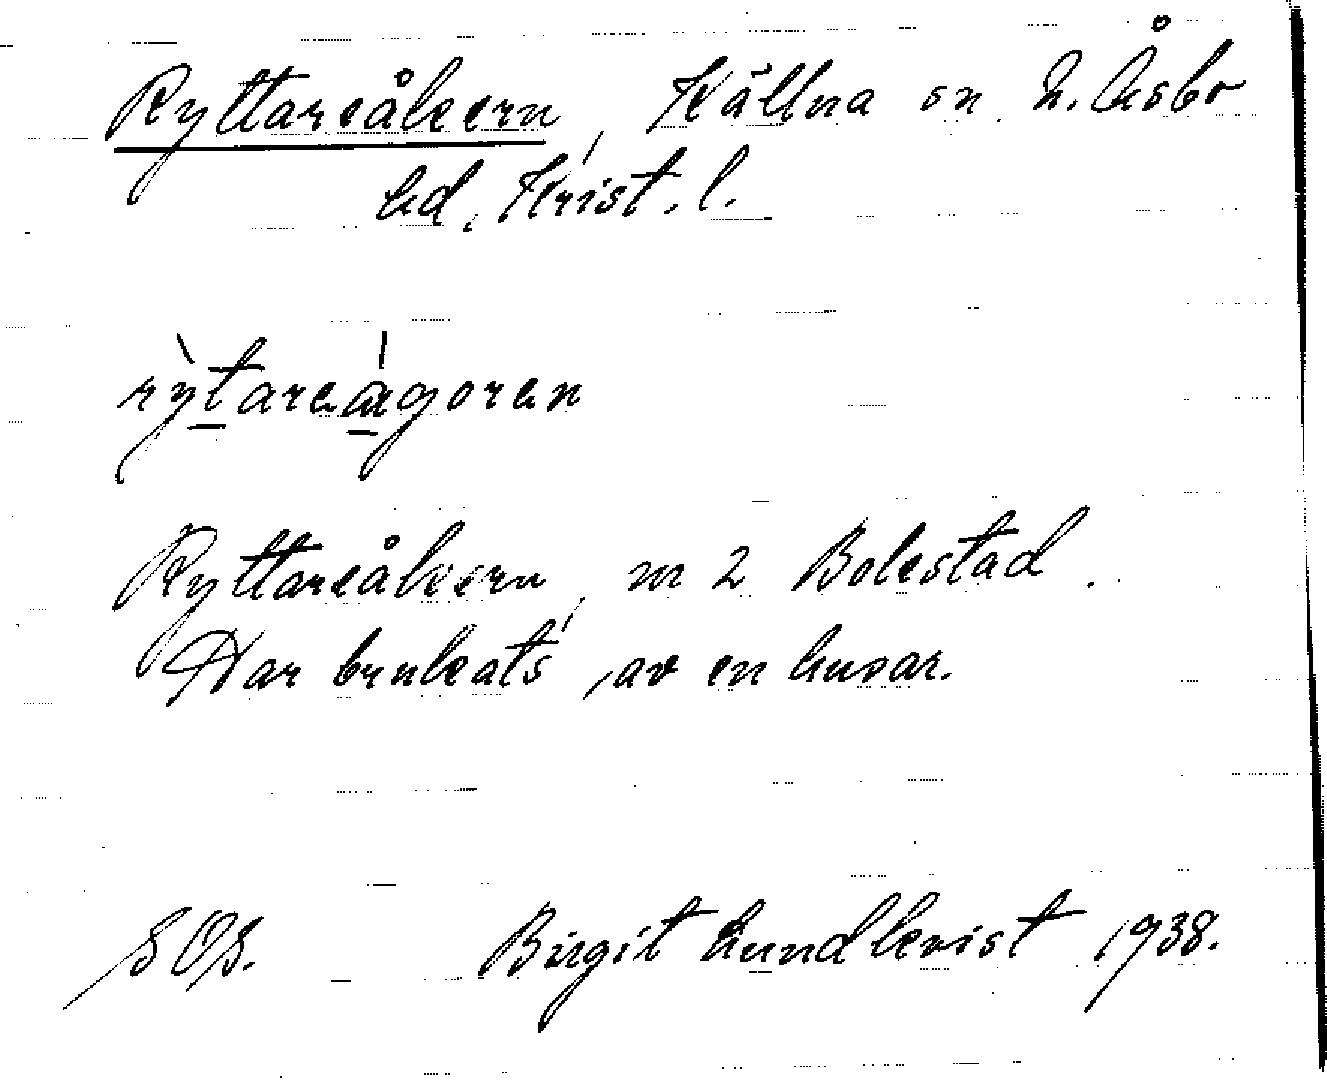 Ryttareåkern, Källna sn. N. Åsbo
hd, Krist. l.
rỳtareágoren
Ryttareåkern, nr 2 Bolestad.
Har brukats, av en husar.
SOS. Birgit Lundkvist 1938.